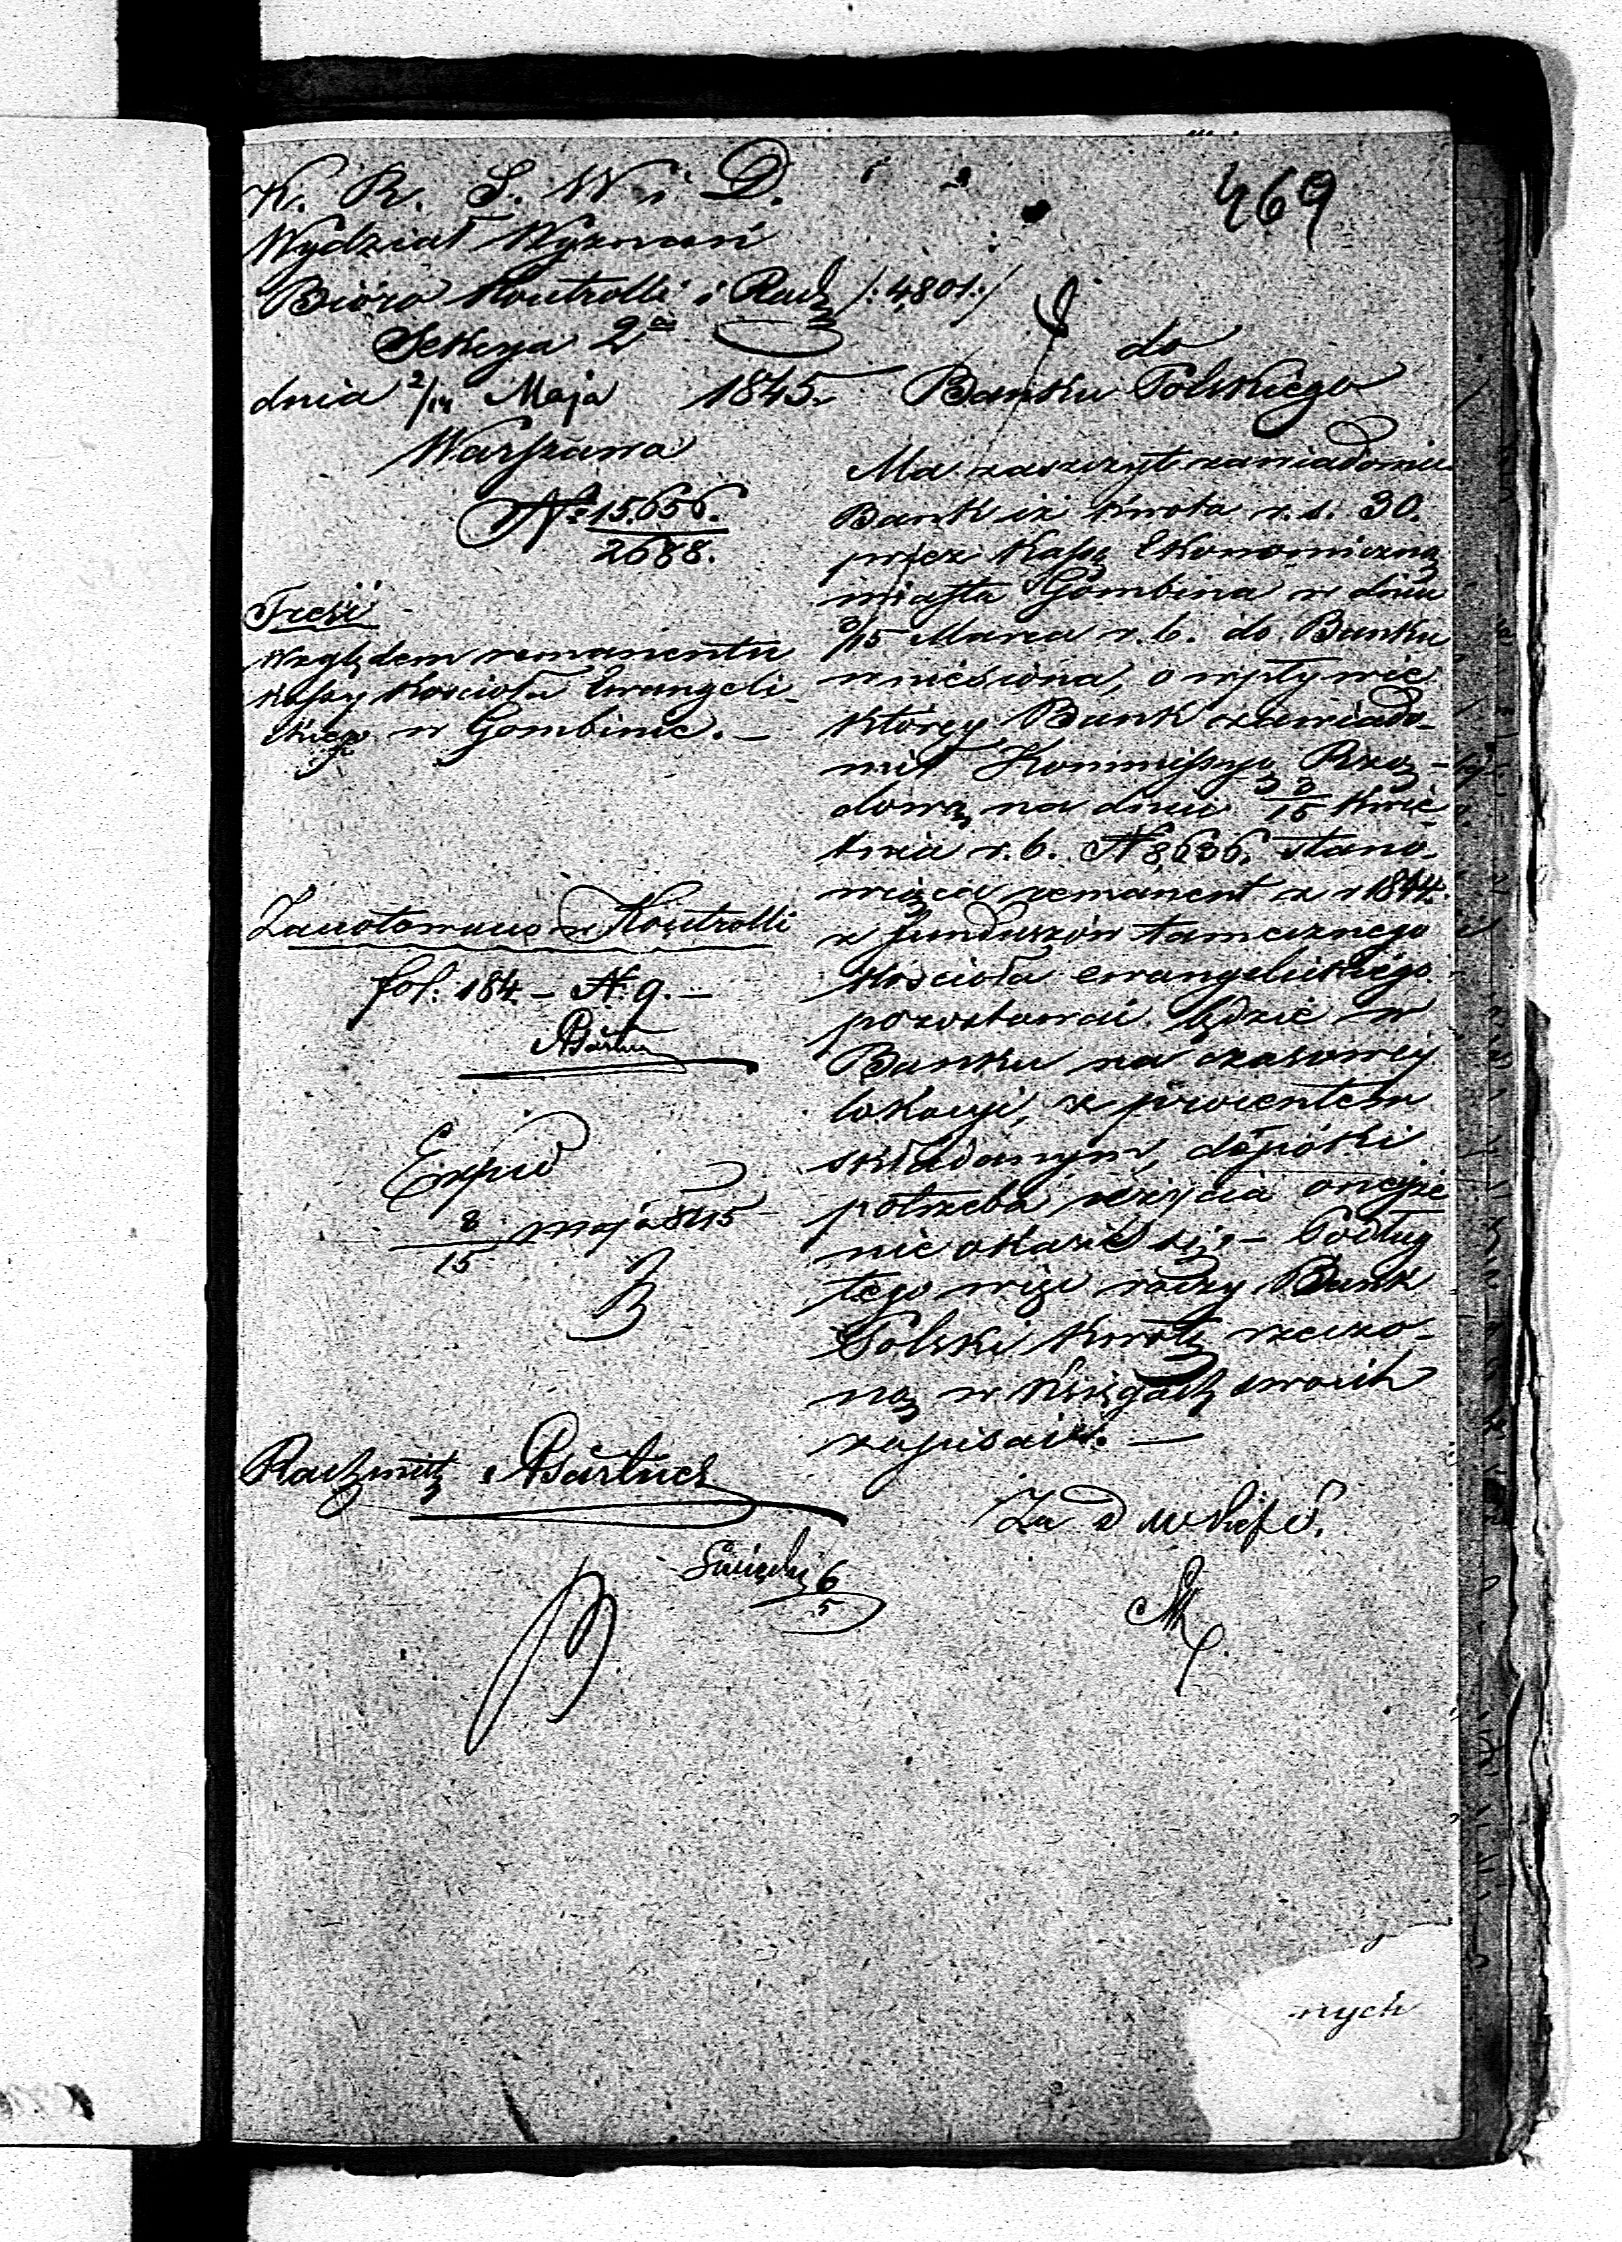 469
K. R. S. W i D.
Wydział Wyznań
Bióro Kontrolli i Rach /:4801:/
Sekcya 2ª
dnia 2/14 Maja 1845.
Warszawa
Nº 15.656.
2688.
Treść
Względem remanentu
Kassy Kościoła Ewangeli-
ckiego w Gombinie. –
Zanotowano w Kontrolli
fol: 184. – N. 9. –
Bartusz
Exped
8/15 maja 1845
Rachmistz Bartusz
6/5
do
Banku Polskiego
Ma zaszczyt zawiadomić
Bank iż kwota r. s. 30.
przez Kassę Ekonomiczną
miasta Gombina w dniu
3/15 Marca r. b. do Banku
wniesiona, o wpływie
którey Bank zawiado-
mił Kommissyą Rzą-
dową na dniu 3/15 Kwie-
tnia r. b. N 8636. stano-
wiąca remanent z r 1844.
z funduszów tamecznego
Kościoła ewangelickiego
pozostawać będzie w
Banku na czasowey
lokacyi, z procentem
składanym, dopóki
potrzeba użycia oneyże
nie okaże się. – Podług
tego więc raczy Bank
Polski kwotę rzeczo-
ną w Księgach swoich
zapisać. –
Za D
nych